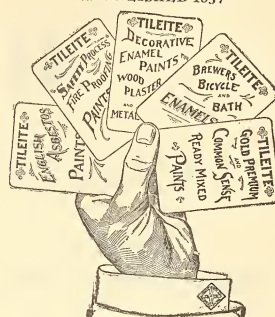 TILEITE
ENGLISH
ASBESTOS
PAINT
TILEITE
PROCESS
FIRE PROOFING
PAINTS
TILEITE
DECORATIVE
ENAMEL
PAINTS
WOOD
PLASTER
AND
METAL
TILEITE
BREWERS
BICYCLE
AND
BATH
ENAMELS
TILEITE
GOLD PREMIUM
AND
COMMON SENSE
READY MIXED
PAINTS